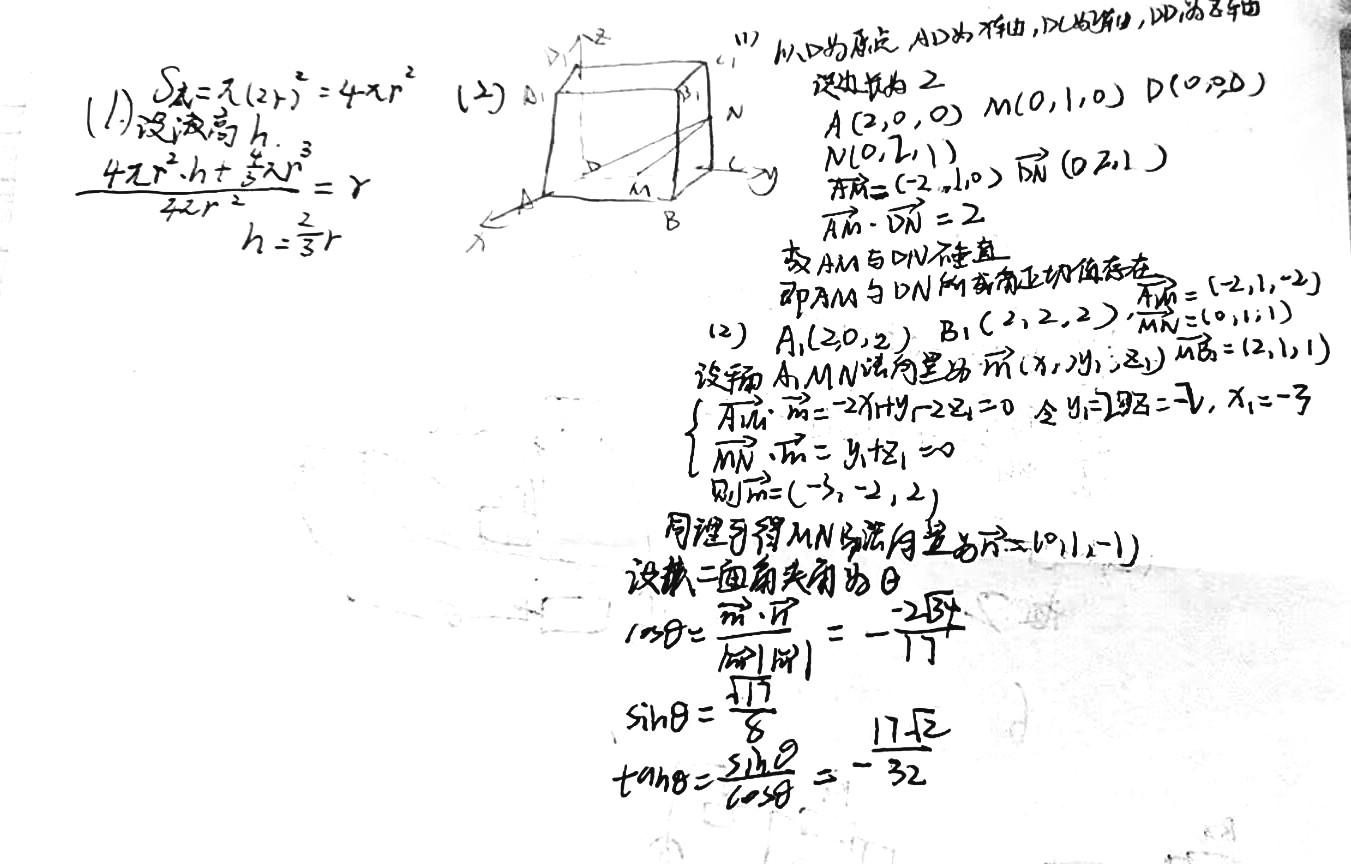 (1.) S底=π(2r)²=4πr²
设液高h.
(4πr²·h+4/3πr³)/(4πr²)=r
h=2/3r
(2)
D₁ z
A₁ B₁ C₁
N
D C y
A M
x B
(1) 以D为原点 AD为x轴,DC为y轴,DD₁为z轴
设边长为2
A(2,0,0) M(0,1,0) D(0,0,0)
N(0,2,1)
AM=(-2,1,0) DN(0 2,1)
AM·DN=2
故AM与DN不垂直
即AM与DN所成角正切值存在
(2) A₁(2,0,2) B₁(2,2,2), A₁M=(-2,1,-2)
MN=(0,1,1)
设平面A₁MN法向量为m(x₁,y₁,z₁) MB₁=(2,1,1)
A₁M·m=-2x₁+y₁-2z₁=0 令 x₁=-3
MN·m=y₁+z₁=0
则m=(-3,-2,2)
同理可得MNB₁法向量为n=(0,1,-1)
设二面角夹角为θ
cosθ=m·n/|m||n|=-(-2√34)/17
sinθ=√17/8
tanθ=sinθ/cosθ=-17√2/32